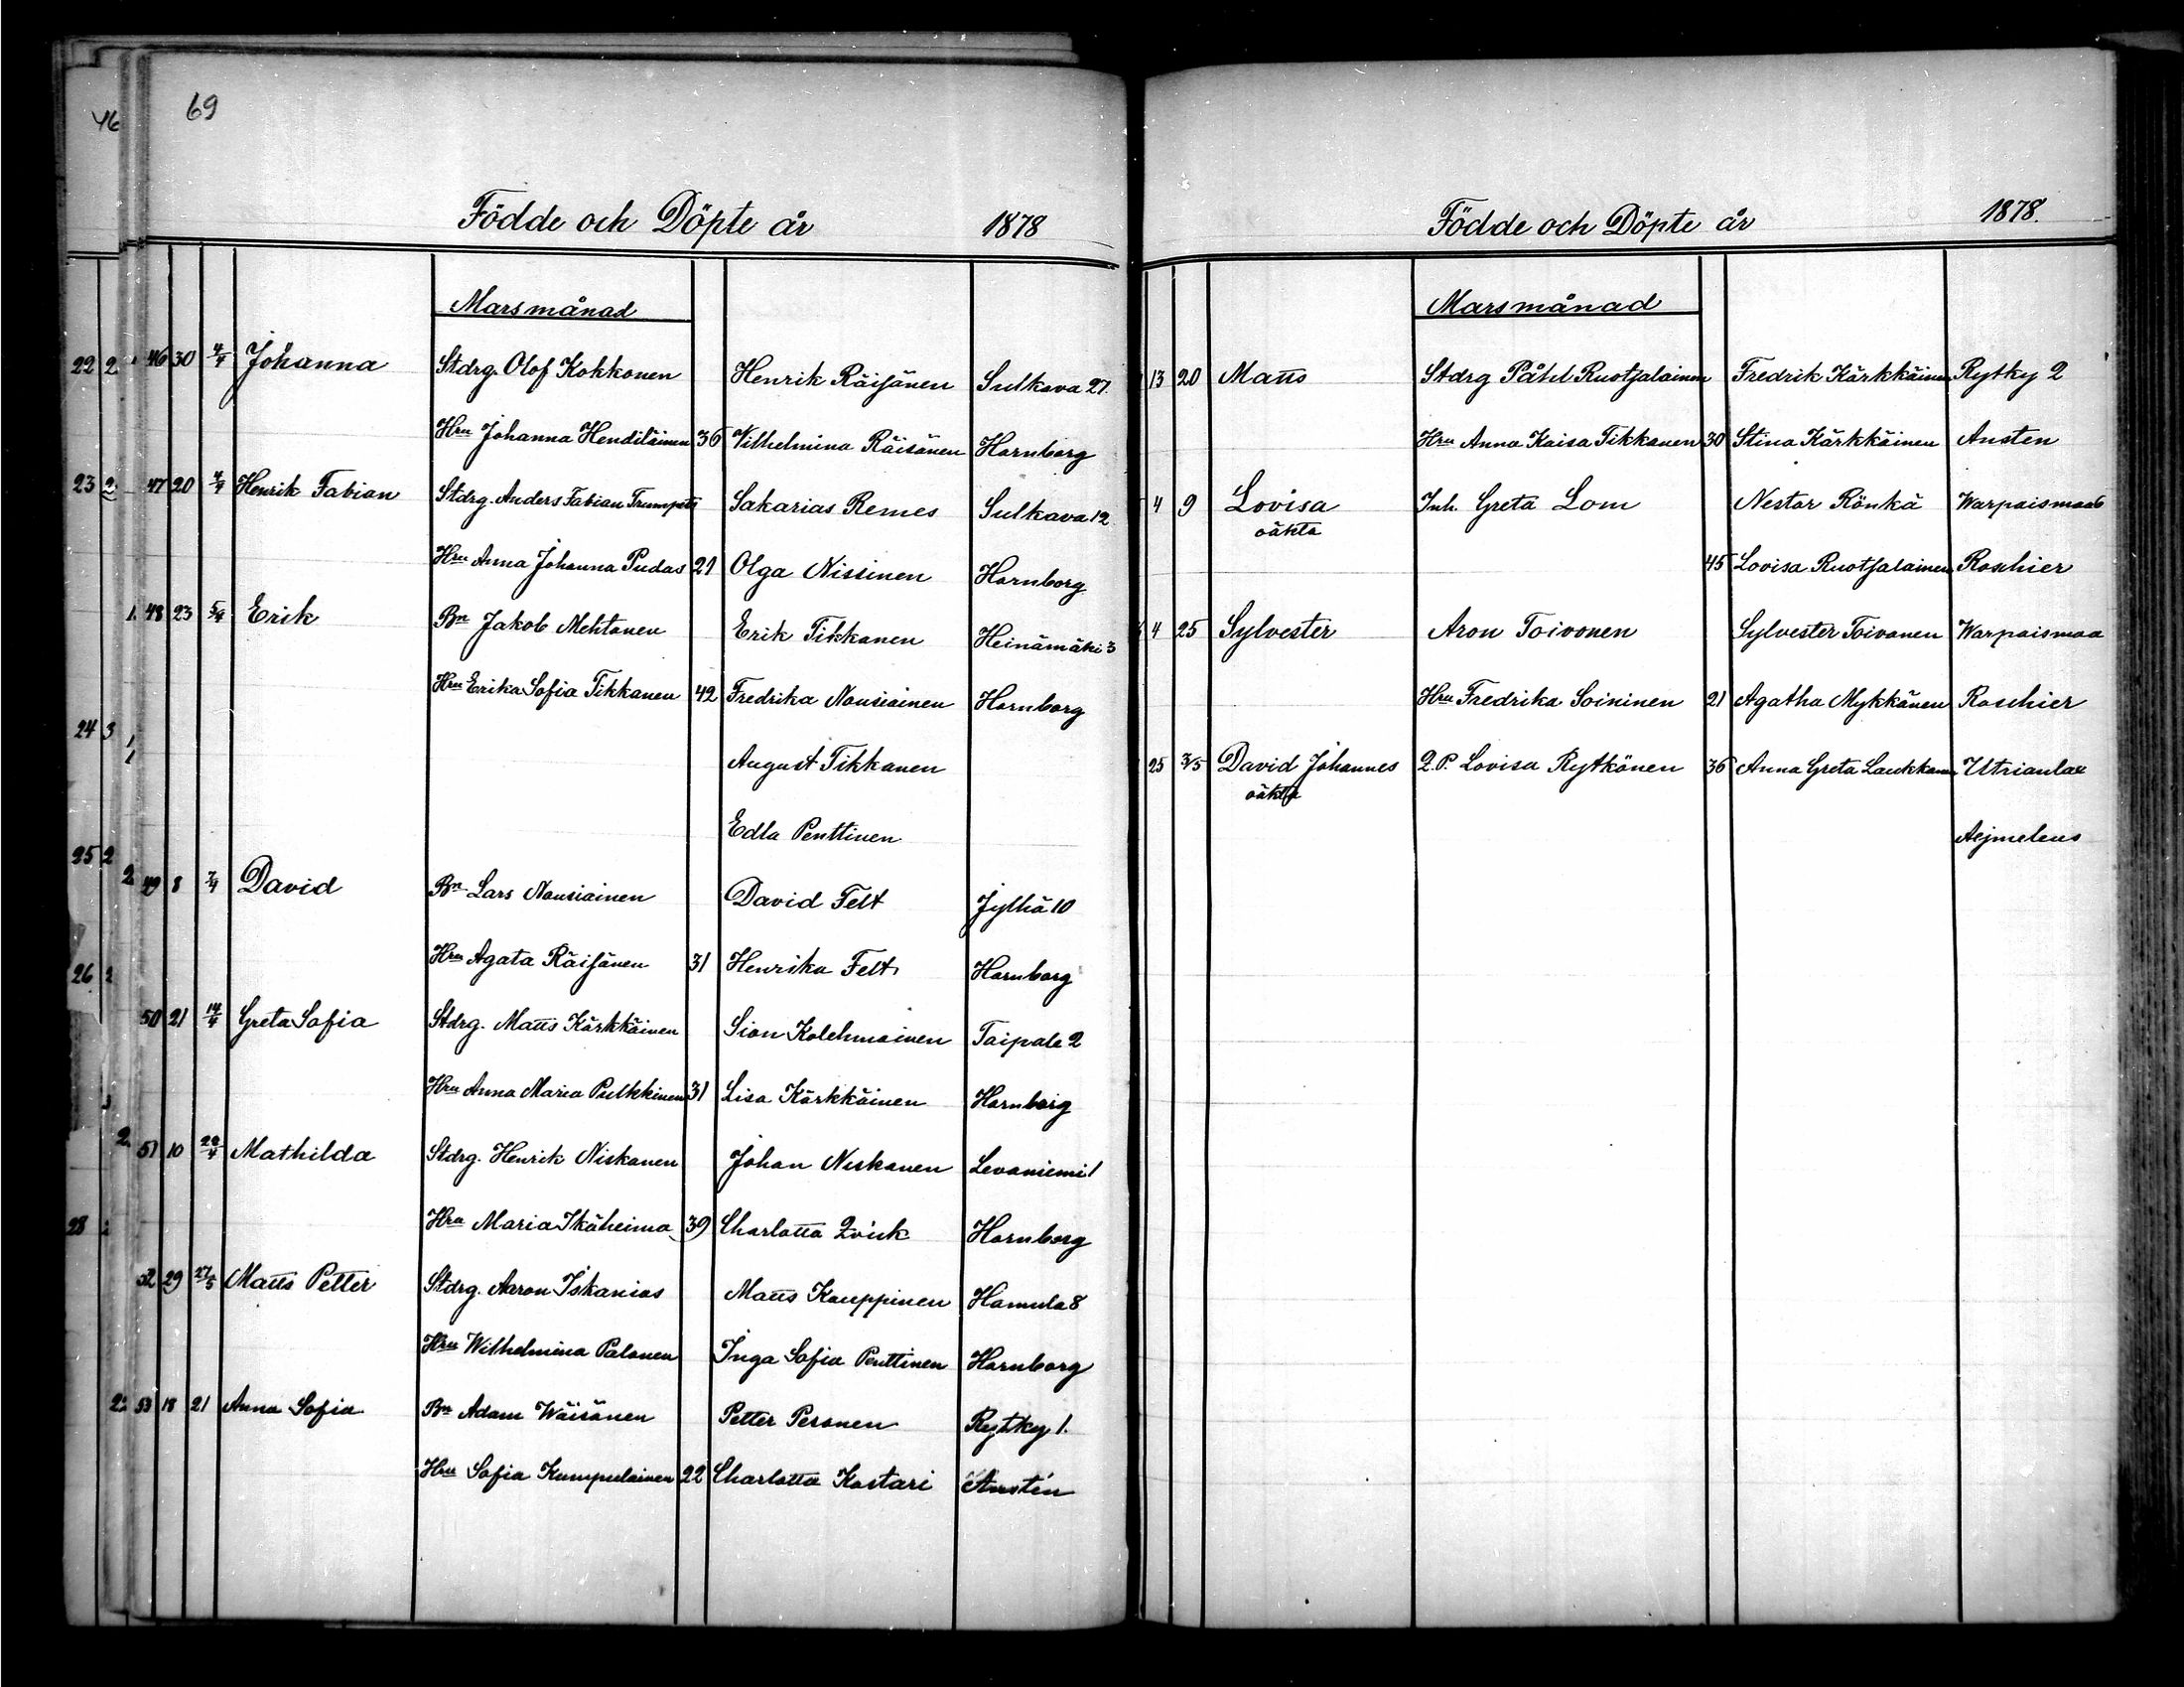 69
46
Födde och Döpte år 1878
Marsmånad
46 30 4/4 Johanna Stdrg. Olof Kokkonen Henrik Räisänen Sulkava 27.
Hru Johanna Hendiläinen 36 Vilhelmina Räisänen Hornborg
47 20 4/4 Henrik Fabian Stdrg. Anders Fabian Sakarias Remes Sulkava 12
Hru Anna Johanna Pudas 21 Olga Nissinen Hornborg
48 23 5/4 Erik Bn Jakob Mehtonen Erik Tikkanen Heinämäki 3
Hru Erika Sofia Tikkanen 42 Fredrika Nousiainen Hornborg
August Tikkanen
Edla Penttinen
49 8 7/4 David Bn Lars Nousiainen David Felt Jylhä 10
Hru Agata Räisänen 31 Henrika Felt Hornborg
50 21 14/4 Greta Sofia Stdrg. Matts Kärkkäinen Sion Kolehmainen Taipale 2
Hru Anna Maria Pulkkinen 31 Lisa Kärkkäinen Hornborg
51 10 22/4 Mathilda Stdrg. Henrik Niskanen Johan Niskanen Levaniemi 1
Hru Maria Ikäheimo 39 Charlotta Hornborg
52 29 27/5 Matts Petter Stdrg. Aaron Iskanius Matts Kauppinen Hamula 8
Hru Wilhelmina Palonen Inga Sofia Penttinen Hornborg
53 18 21 Anna Sofia Bn Adam Wäisänen Petter Pesonen Rytky 1.
Hru Sofia Kumpulainen 22 Charlotta Kostari Austén
22 2
23 2
24 3
25 2
26 2
28 2
Födde och Döpte år 1878.
Marsmånad
13 20 Matts Stdrg Påhl Ruotsalainen Fredrik Kärkkäinen Rytky 2
Hru Anna Kaisa Tikkanen 30 Stina Kärkkäinen Austen
4 9 Lovisa Inh. Greta Lom Nestor Rönkä Warpaismaa 6
oäkta
45 Lovisa Ruotsalainen Roschier
4 25 Sylvester Aron Toivonen Sylvester Toivonen Warpaismaa
Hru Fredrika Soininen 21 Agatha Mykkänen Roschier
25 3/5 David Johannes Q.P. Lovisa Rytkönen 36 Anna Greta Laukkanen Utrianlax
oäkta
Aejmeleus